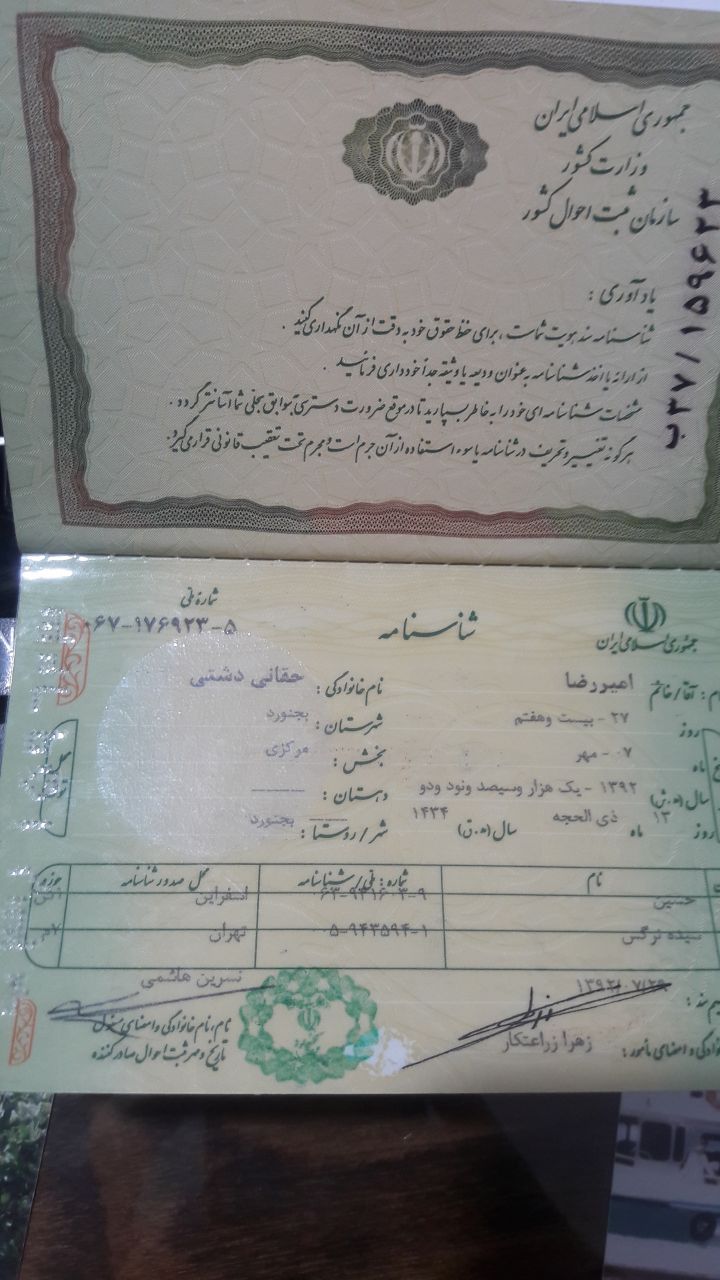 جمهوری اسلامی ایران
وزارت کشور
سازمان ثبت احوال کشور
ب۳۷/۱۵۹۶۲۳
یادآوری :
شناسنامه سند هویت شماست ، برای حفظ حقوق خود به دقت از آن نگهداری کنید .
از ارائه یا اخذ شناسنامه به عنوان ودیعه یا وثیقه جداً خودداری فرمائید .
مشخصات شناسنامه ای خود را به خاطر بسپارید تا در موقع ضرورت دسترسی به سوابق سجلی شما آسانتر گردد .
هرگونه تغییر و تحریف در شناسنامه یا سوء استفاده از آن جرم است و مجرم تحت تعقیب قانونی قرار می گیرد.
جمهوری اسلامی ایران
شناسنامه
شماره ملی
۰۶۷-۱۷۶۹۲۳-۵
نام : آقا/خانم امیررضا نام خانوادگی : حقانی دشتی
روز ۲۷ - بیست وهفتم شهرستان : بجنورد
ماه ۰۷ - مهر بخش : مرکزی
سال (ه.ش) ۱۳۹۲ - یک هزار وسیصد ونود ودو دهستان : ------
روز ۱۳ ماه ذی الحجه سال (ه.ق) ۱۴۳۴ شهر / روستا : بجنورد
نام شماره : ملی / شناسنامه محل صدور شناسنامه حوزه
حسین ۰۶۳-۹۳۱۶۰۳-۹ اسفراین
سیده نرگس ۰۰۵-۹۴۳۵۹۴-۱ تهران
۱۳۹۲/۰۷/۲۹ نسرین هاشمی
زهرا زراعتکار
نام، نام خانوادگی و امضای مسئول
تاریخ و مهر ثبت احوال صادر کننده